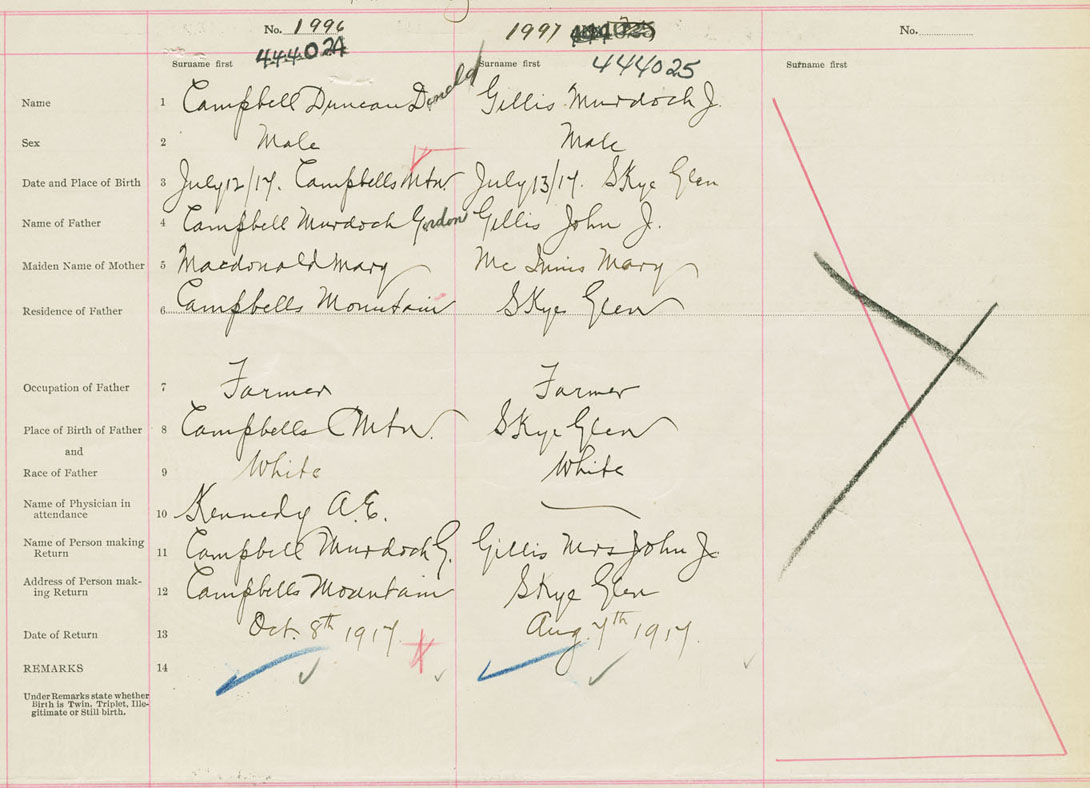 No. 1996 1997 No.
444024 444025
Surname first Surname first 444025 Surname first
Name 1 Campbell Duncan Donald Gillis Murdoch J.
Sex 2 Male Male
Date and Place of Birth 3 July 12/17. Campbells Mtn July 13/17. SKye Glen
Name of Father 4 Campbell Murdoch Gordon Gillis John J.
Maiden Name of Mother 5 Macdonald Mary Mc Innis Mary
Residence of Father 6 Campbells Mountain SKye Glen
Occupation of Father 7 Farmer Farmer
Place of Birth of Father 8 Campbells Mtn. SKye Glen
and
Race of Father 9 White White
Name of Physician in
attendance 10 Kennedy A.E.
Name of Person making
Return 11 Campbell Murdoch G. Gillis Mrs John J.
Address of Person mak-
ing Return 12 Campbells Mountain SKye Glen
Date of Return 13 Oct. 8th 1917 Aug. 7th 1917.
REMARKS 14
Under Remarks state whether
Birth is Twin, Triplet, Ille-
gitimate or Still birth.